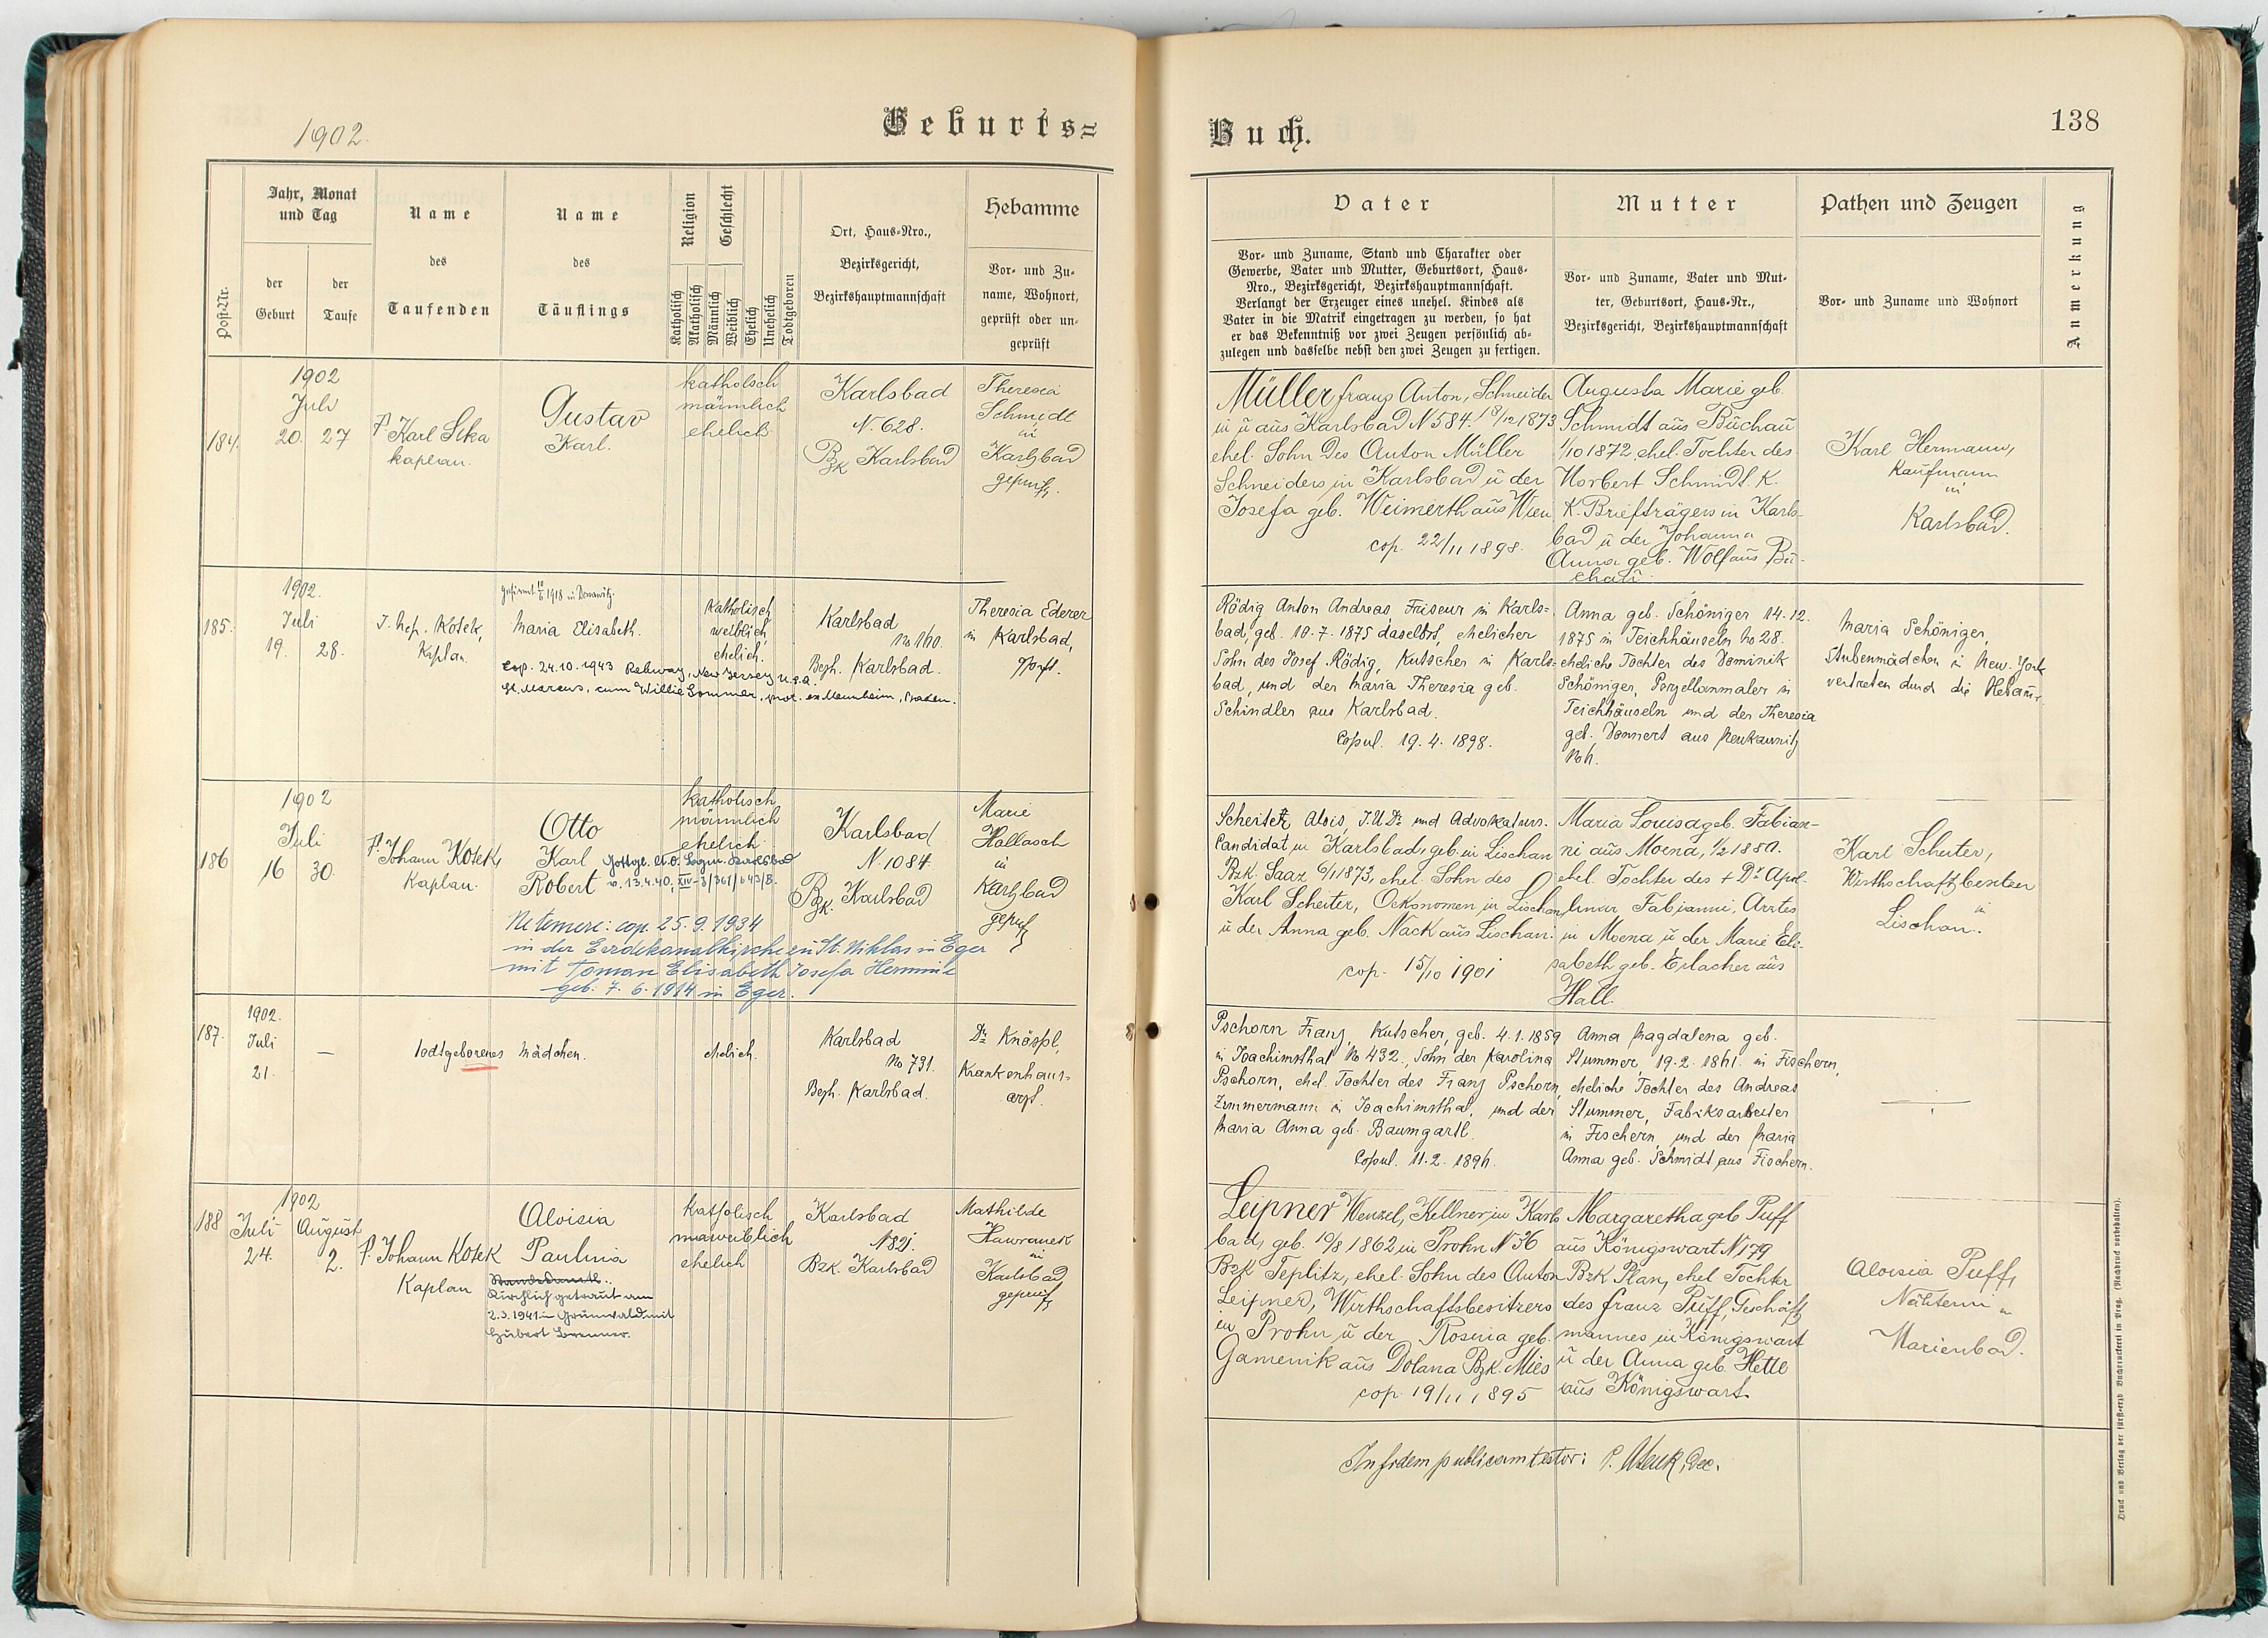 1902.
Geburts=
Buch.
138
Post-Nr.
Jahr, Monat
und Tag
der
Geburt
der
Taufe
Name
des
Taufenden
Name
des
Täuflings
Religion
Katholisch
Akatholisch
Geschlecht
Männlich
Weiblich
Ehelich
Unehelich
Todtgeboren
Ort, Haus-Nro.,
Bezirksgericht,
Bezirkshauptmannschaft
Hebamme
Vor- und Zu-
name, Wohnort,
geprüft oder un-
geprüft
Vater
Vor- und Zuname, Stand und Charakter oder
Gewerbe, Vater und Mutter, Geburtsort, Haus-
Nro., Bezirksgericht, Bezirkshauptmannschaft.
Verlangt der Erzeuger eines unehel. Kindes als
Vater in die Matrik eingetragen zu werden, so hat
er das Bekenntniß vor zwei Zeugen persönlich ab-
zulegen und dasselbe nebst den zwei Zeugen zu fertigen.
Mutter
Vor- und Zuname, Vater und Mut-
ter, Geburtsort, Haus-Nr.,
Bezirksgericht, Bezirkshauptmannschaft
Pathen und Zeugen
Vor- und Zuname und Wohnort
Anmerkung
184.
1902
Juli
20. 27
P. Karl Sika
kaplan.
Gustav
Karl.
katholsch
männlich
ehelich
Karlsbad
N. 628.
Bzk Karlsbad
Theresia
Schmidt
in
Karlsbad
geprüft.
Müller franz Anton, Schneider
in ü aus Karlsbad N 584. 18/12 1873
ehel. Sohn des Anton Müller
Schneiders in Karlsbad ü der
Josefa geb. Weimerth aus Wien
cop. 22/11 1898.
Augusta Marie geb.
Schmidt aus Büchau
1/10 1872, ehel. Tochter des
Norbert Schmidt K.
K. Briefträgers in Karls-
bad ü der Johanna
Anna geb. Wolf aus Bü-
chau
Karl Hermann,
Kaufmann
in
Karlsbad.
185.
1902.
Juli
19. 28.
J. Nep. Kotek,
Kaplan.
gefirmt 1918 in Donawitz
Maria Elisabeth.
cop. 24.10.1943 Rahway, New Jersey U.S.A.
St. Marcus, cum Willie Sommer, prot. ex Mannheim, Baden.
Katholisch
weiblich
ehelich.
Karlsbad
Bezh. Karlsbad.
Theresia Ederer
in Karlsbad,
Rödig Anton Andreas, Friseur in Karls=
bad, geb. 10.7.1875 daselbst, ehelicher
Sohn des Josef Rödig, Kutscher in Karls-
bad, und der Maria Theresia geb.
Schindler aus Karlsbad.
Copul. 19.4.1898.
Anna geb. Schöniger 14.12.
1875 in Teichhäuseln No 28.
eheliche Tochter des Dominik
Schöniger, Porzellanmaler in
Teichhäuseln und der Theresia
geb. Donnert aus
Maria Schöniger,
Stubenmädchen in New-York
vertreten durch die Hebam̄e
186
1902
Juli
16 30.
P. Johann Kotek,
Kaplan.
Otto
Karl
Robert
Gottgl. lt. O. Begm. Karlsbad
v. 13.4.40, XIV-3/361/643/B.
Ne temere: cop. 25.9.1934
in der Erzdekanalkirche zu St. Niklas in Eger
mit Toman Elisabeth Josefa Hermine
geb. 7.6.1914 in Eger.
katholisch
männlich
ehelich
Karlsbad
N. 1084.
Bzk. Karlsbad
Marie
Hallasch
in
Karlsbad
geprüft
Scheiter Alois, J.U.Dr und Advokaturs.
Candidat in Karlsbad, geb. in Lischan
Bzk. Saaz 6/1 1873, ehel. Sohn des
Karl Scheiter, Oekonomen in Lischan
ü der Anna geb. Nack aus Lischan.
cop. 15/10 1901
Maria Louisa geb. Fabian-
ni aus Moena, 1/2 1880.
ehel. Tochter des + Dr Apol-
linar Fabianni, Arztes
in Moena ü der Marie Eli-
sabeth geb. Erlacher aus
Hall.
Karl Scheiter,
Wirthschaftsbesitzer
in
Lischan.
187.
1902.
Juli
21.
—
todtgeborenes Mädchen.
ehelich.
Karlsbad
No 791.
Bezh. Karlsbad.
Dr Knöspl,
Krankenhaus-
arzt.
Pschorn Franz, Kutscher, geb. 4.1.1859
in Joachimsthal No 432., Sohn der Karolina
Pschorn, ehel. Tochter des Franz Pschorn,
Zimmermann in Joachimsthal, und der
Maria Anna geb. Baumgartl.
Anna Magdalena geb.
Stummer, 19.2.1861. in Fischern,
eheliche Tochter des Andreas
Stummer, Fabriksarbeiter
in Fischern, und der Maria
Anna geb. Schmidt aus Fischern.
188
1902
Juli August
24. 2.
P. Johann Kotek
Kaplan
Aloisia
Paulina
Kirchlich getraut am
2.3.1941 in Grünwald mit
Hubert Brenner.
katholisch
weiblich
ehelich
Karlsbad
Bzk. Karlsbad
Mathilde
Hawranek
in
Karlsbad
geprüft
Leipner Wenzel, Kellner in Karls
bad, geb. 10/8 1862 in Prohn N 36
Bzk Teplitz, ehel. Sohn des Anton
Leipner, Wirthschaftsbesitzers
in Prohn ü der Rosina geb.
Gamenik aus Dolana Bzk. Mies
cop. 19/11 1895
Margaretha geb Puff
aus Königswart N 179
Bzk Plan, ehel Tochter
des franz Puff, Geschäfts
mannes in Königswart
ü der Anna geb. Hette
aus Königswart
Aloisia Puff,
Nähterin in
Marienbad.
In fidem publicam testor:
Druck und Verlag der fürst-erzb. Buchdruckerei in Prag. (Nachdruck vorbehalten).